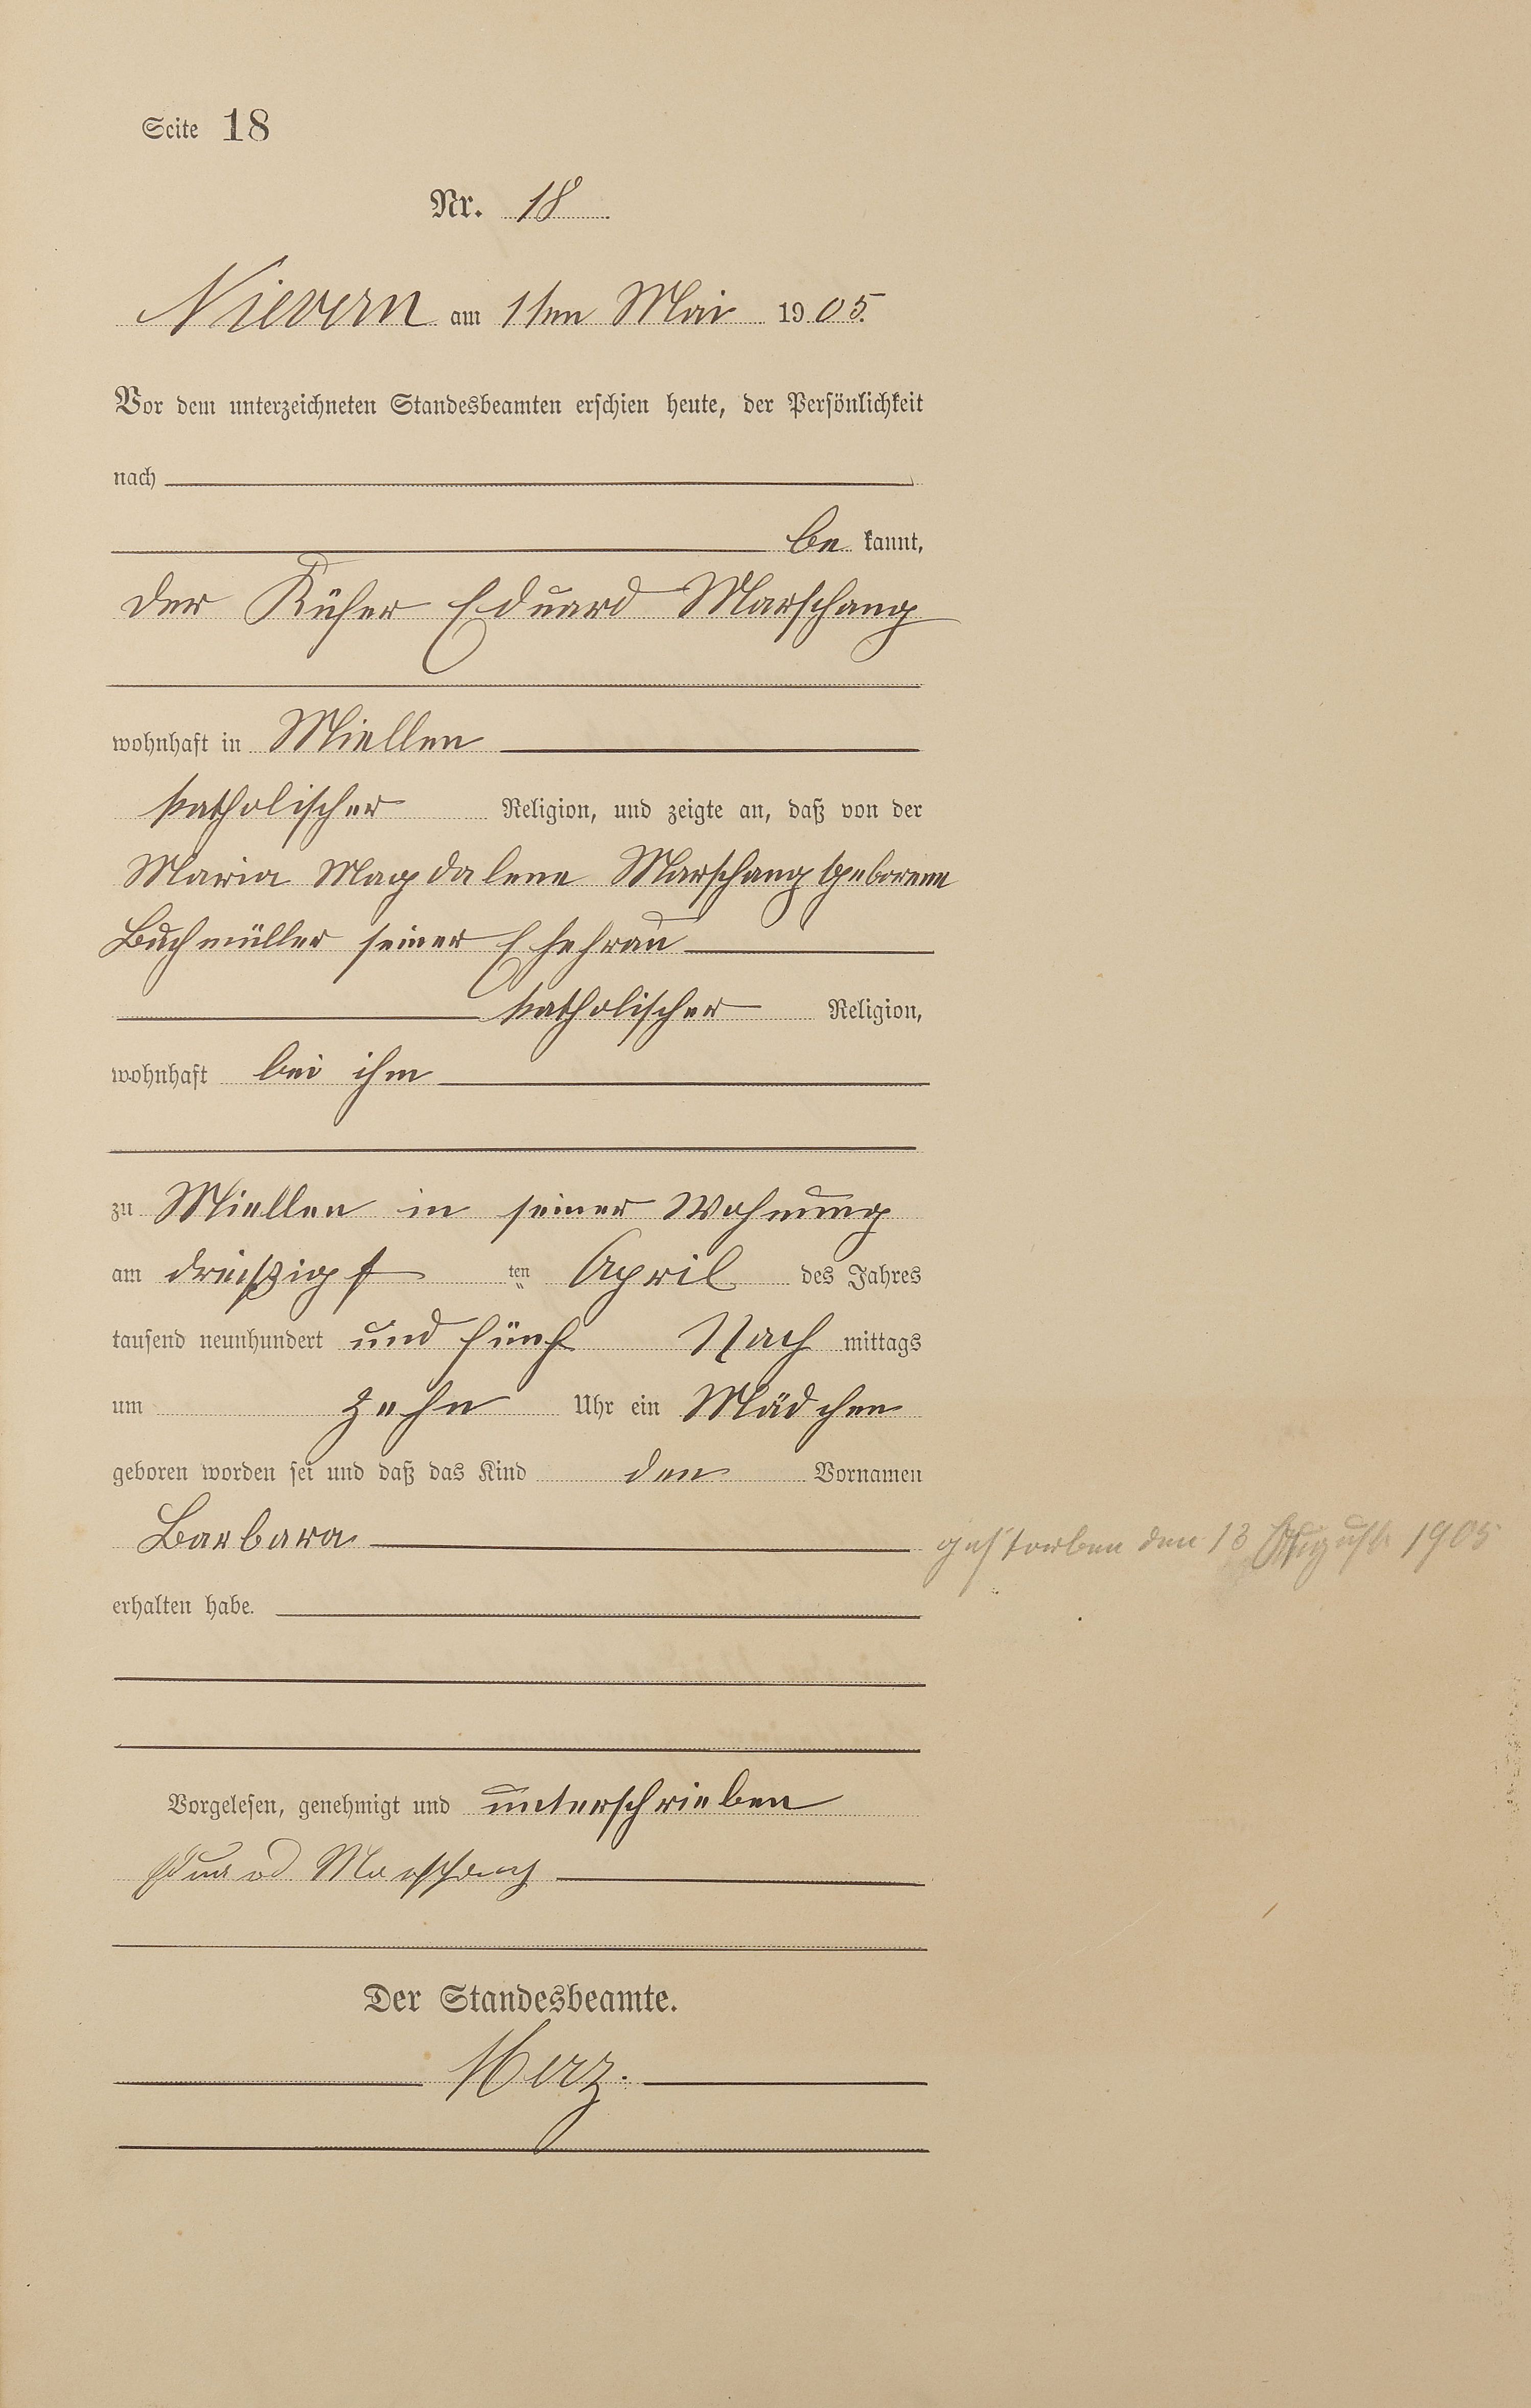 Seite 18
Nr. 18
Nievern am 1ten Mai 1905.
Vor dem unterzeichneten Standesbeamten erschien heute, der Persönlichkeit
nach
be kannt,
der Küfer Eduard Marschang
wohnhaft in Miellen
katholischer Religion, und zeigte an, daß von der
Maria Magdalene Marschang geborene
Buchmüller seiner Ehefrau
katholischer Religion,
wohnhaft bei ihm
zu Miellen in seiner Wohnung
am dreißigst ten April des Jahres
tausend neunhundert und fünf Nach mittags
um zehn Uhr ein Mädchen
geboren worden sei und daß das Kind den Vornamen
Barbara
gestorben den 13 August 1905
erhalten habe.
Vorgelesen, genehmigt und unterschrieben
Eduard Marschang
Der Standesbeamte.
Herz.